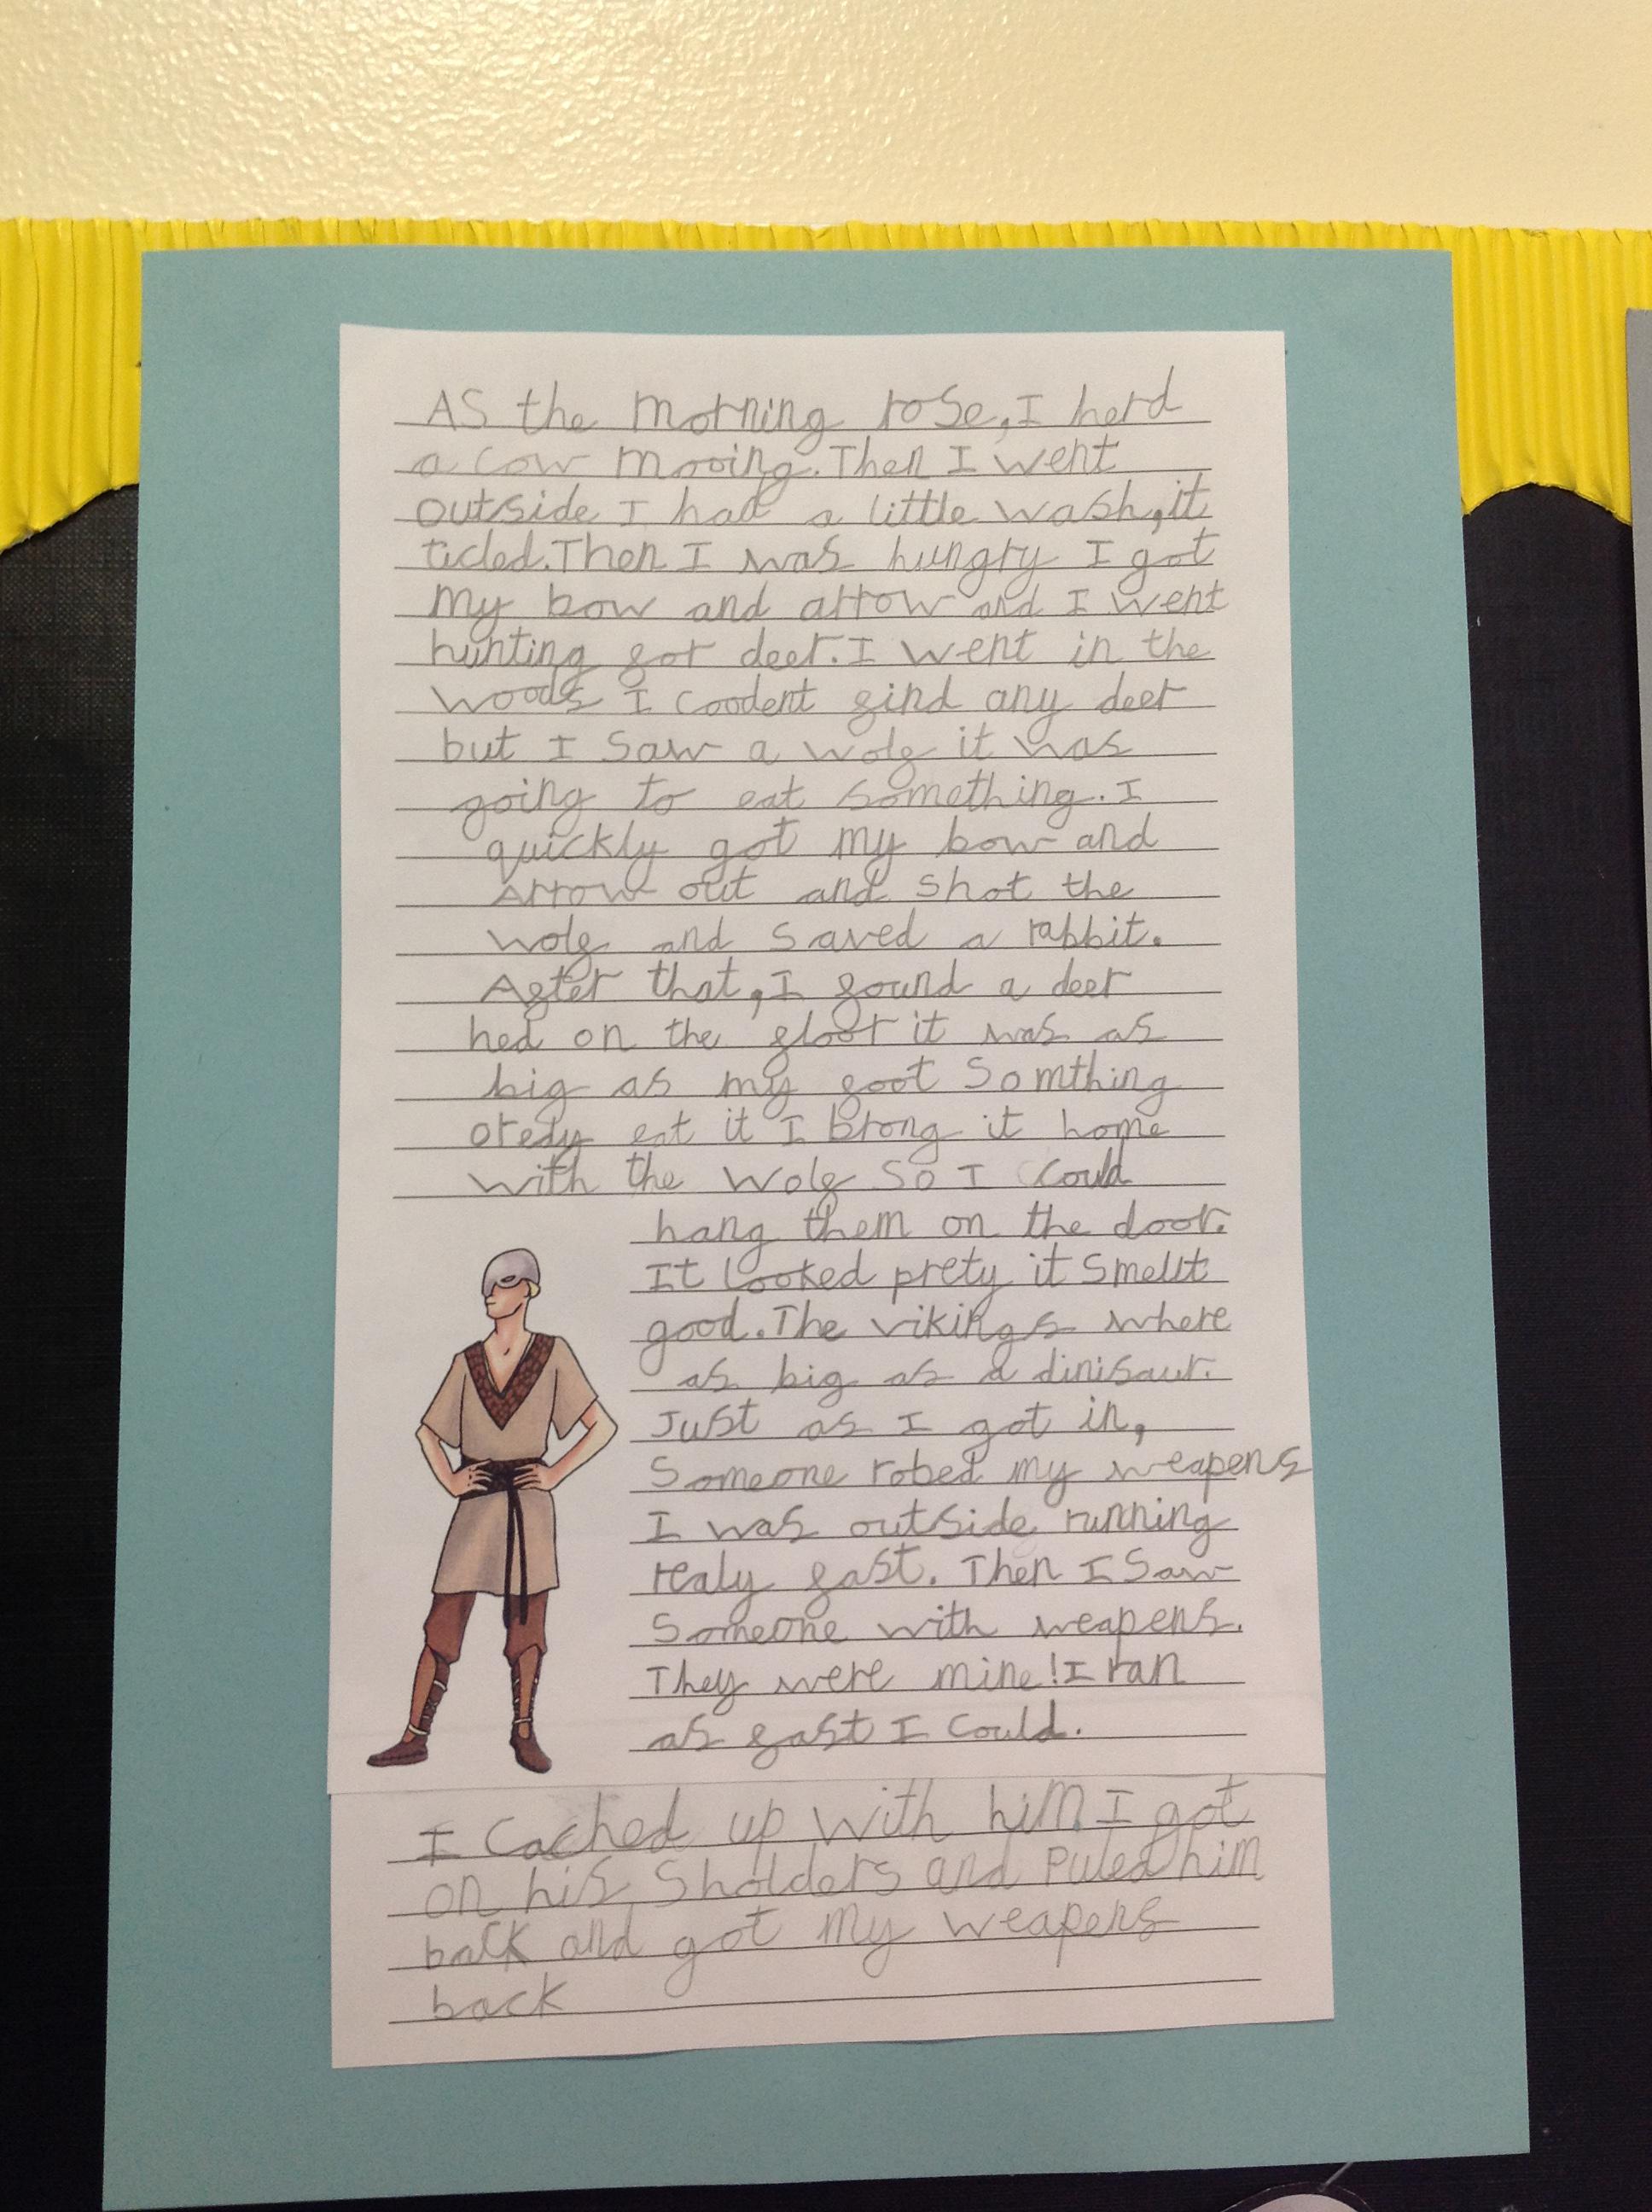 As the morning rose, I herd
a cow mooing. Then I went
outside I had a little wash, it
ticled. Then I was hungry I got
my bow and arrow and I went
hunting for deer. I went in the
woods I coodent find any deer
but I saw a wolf it was
going to eat something. I
quickly got my bow and
Arrow out and shot the
wolf and saved a rabbit.
After that, I found a deer
hed on the floor it was as
big as my foot Somthing
oredy eat it I brong it home
with the wolf so I could
hang them on the door.
It looked prety it smellt
good. The vikings where
as big as a dinisaur.
Just as I got in,
Someone robed my weapens
I was outside running
realy fast. Then I saw
someone with weapens.
They were mine! I ran
as fast I could.
I cached up with him I got
on his sholders and puled him
back and got my weapens
back